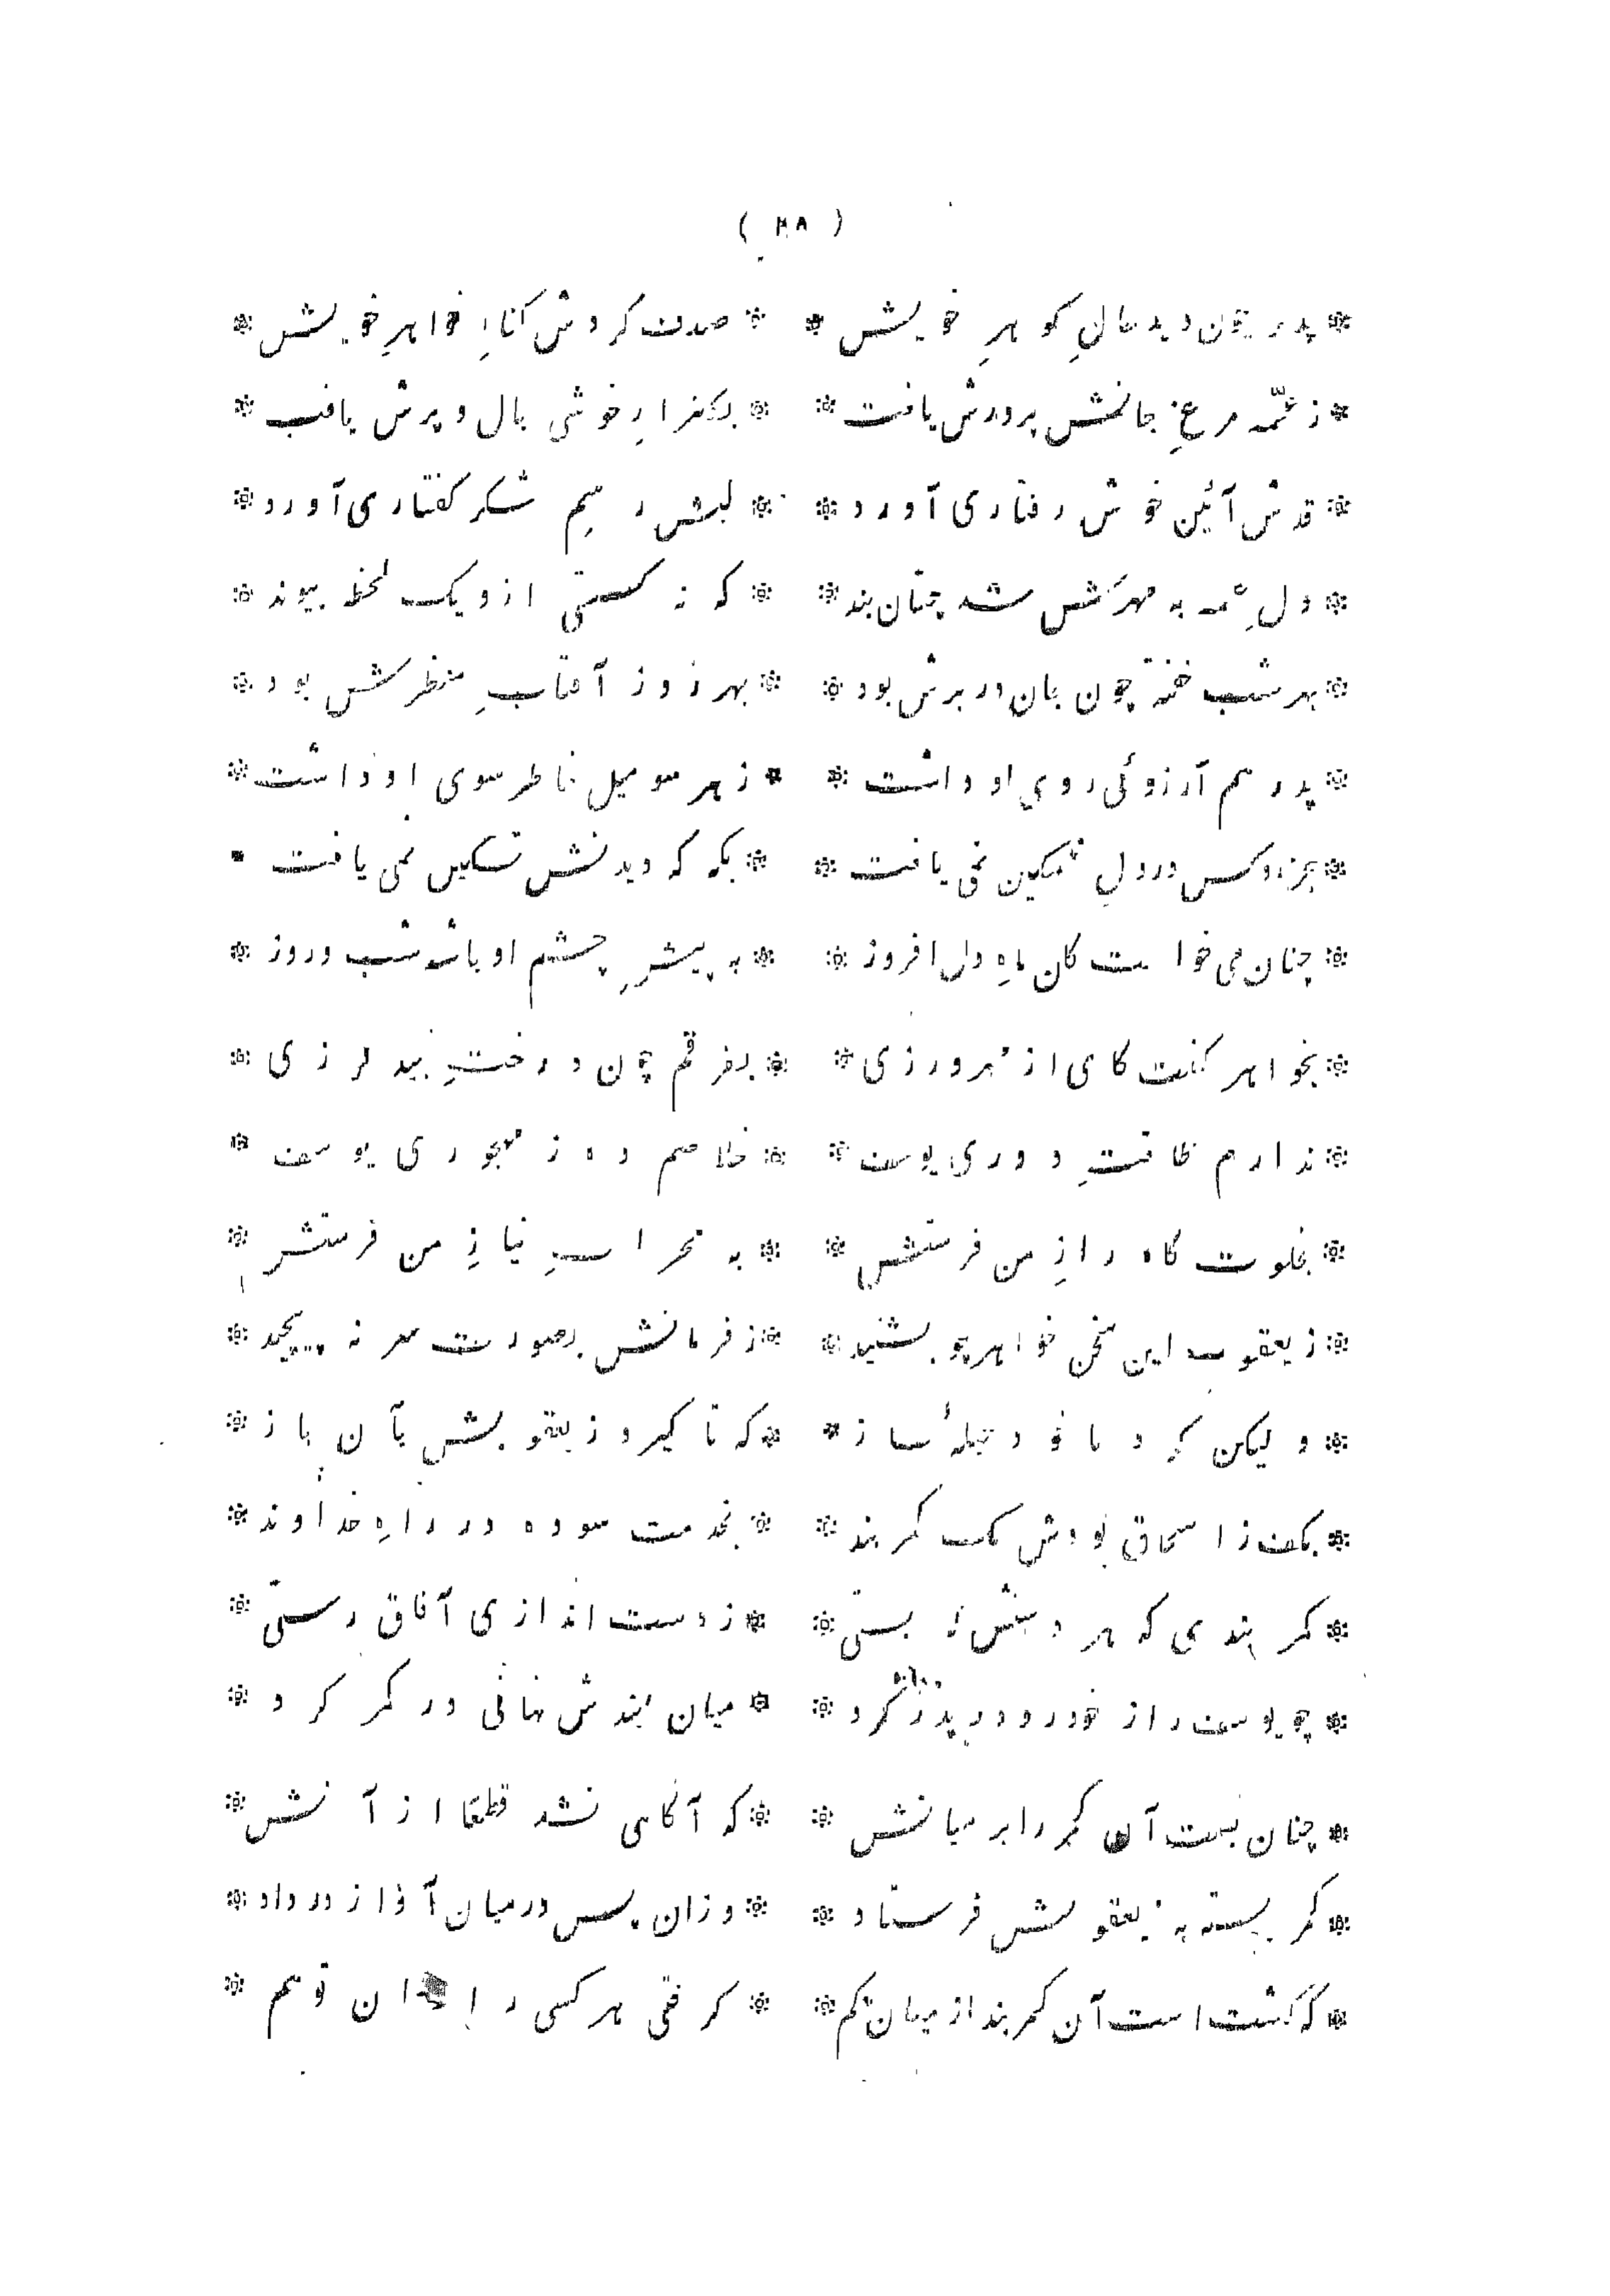 ( ۳۸ )
* پدر چون دید حالِ گوهرِ خویش * * صدف کردش کنارِ خواهرِ خویش *
* ز عمّه مرغِ جانش پرورش یافت * * بگلزارِ خوشی بال و پرش یافت *
* قدش آئین خوش رفتاری آورد * * لبش رسم شکر گفتاری آورد *
* دلِ عمه به مهرش شد چنان بند * * که نگسستی ازو یک لحظه پیوند *
* بهر شب خفته چون جان در برش بود * * بهر روز آفتابِ منظرش بود *
* پدر هم آرزوئی روی او داشت * * ز هر سو میل خاطر سوی او داشت *
* بجز او کس در دلِ غمگین نمی یافت * * بگه گه دیدنش تسکین نمی یافت *
* چنان می خواست کان ماهِ دل افروز * * به پیشِ چشم او باشد شب و روز *
* بخواهر گفت کای از مهر ورزی * * بفرقم چون درختِ بید لرزی *
* ندارم طاقتِ دوری یوسف * * خلاصم ده ز مهجوری یوسف *
* بخلوت گاه رازِ من فرستش * * به محرابِ نیازِ من فرستش *
* ز یعقوب این سخن خواهر چو بشنید * * ز فرمانش بصورت سر نه پیچید *
* ولیکن کرد با خود حیلهٔ ساز * * که تا گیرد ز یعقوبش بآن باز *
* بکف ز اسحاق بودش یک کمربند * * بخدمت سوده در راهِ خداوند *
* کمربندی که هر دستش که بستی * * ز دست اندازی آفاق رستی *
* چو یوسف را ز خود رو در پدر کرد * * میان بندش نهانی در کمر کرد *
* چنان بست آن کمر را بر میانش * * که آگاهی نشد قطعًا از آنش *
* کمر بسته به یعقوبش فرستاد * * وزان پس در میان آوازه در داد *
* که گشت است آن کمربند از میان گم * * گرفتی هر کسی را زان توهم *